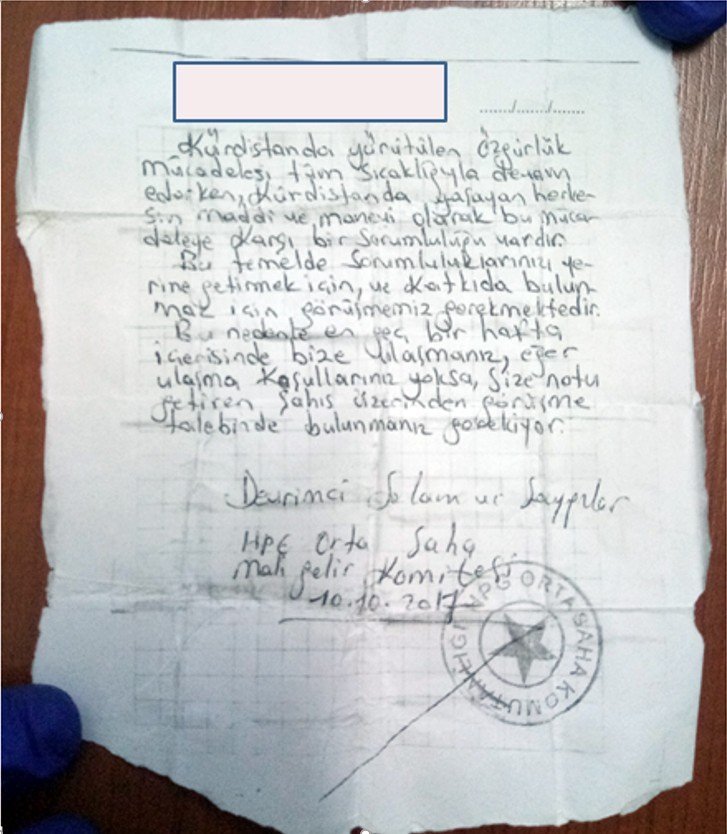 ....../....../......
Kürdistanda yürütülen Özgürlük
mücadelesi tüm sıcaklığıyla devam
ederken, Kürdistanda yaşayan herke-
sin maddi ve manevi olarak bu müca-
deleye karşı bir sorumluluğu vardır.
Bu temelde sorumluluklarınızı ye-
rine getirmek için, ve katkıda bulun-
mak için görüşmemiz gerekmektedir.
Bu nedenle en geç bir hafta
içerisinde bize ulaşmanız, eğer
ulaşma koşullarınız yoksa, size notu
getiren şahıs üzerinden görüşme
talebinde bulunmanız gerekiyor.
Devrimci Selam ve Saygılar
HPG Orta Saha
Mali gelir Komitesi
10.10.2017
HPG ORTA SAHA KOMUTANLIGI